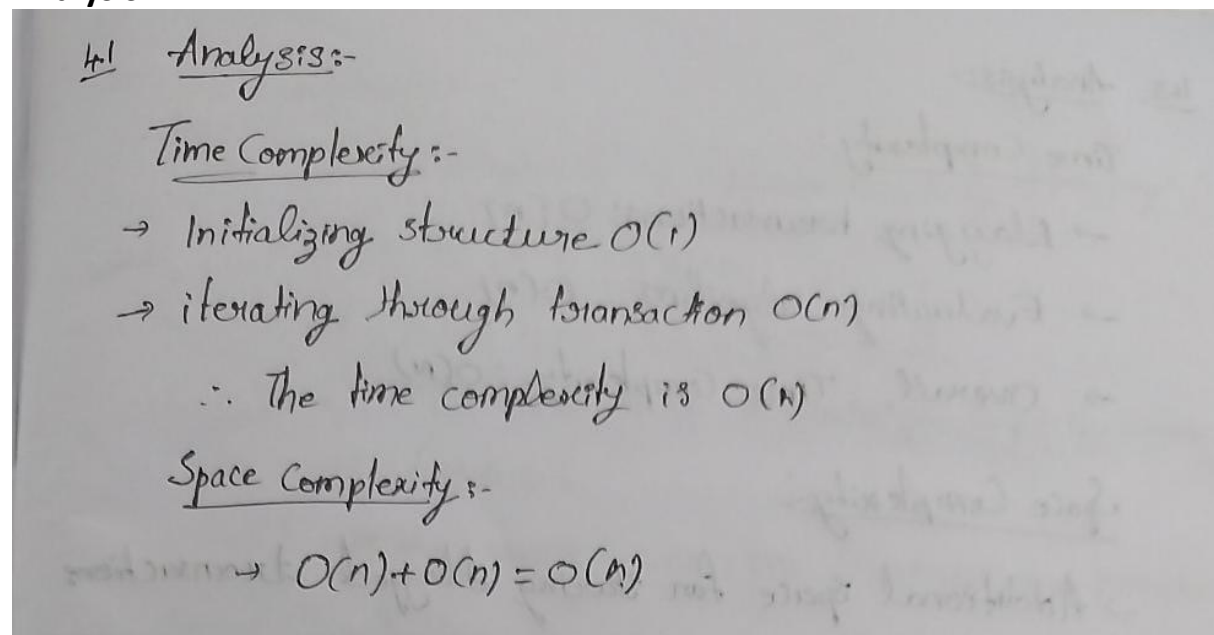 4.1 Analysis:-
Time Complexity:-
→ Initializing structure O(1)
→ iterating through transaction O(n)
∴ The time complexity is O(n)
Space Complexity:-
→ O(n)+O(n) = O(n)